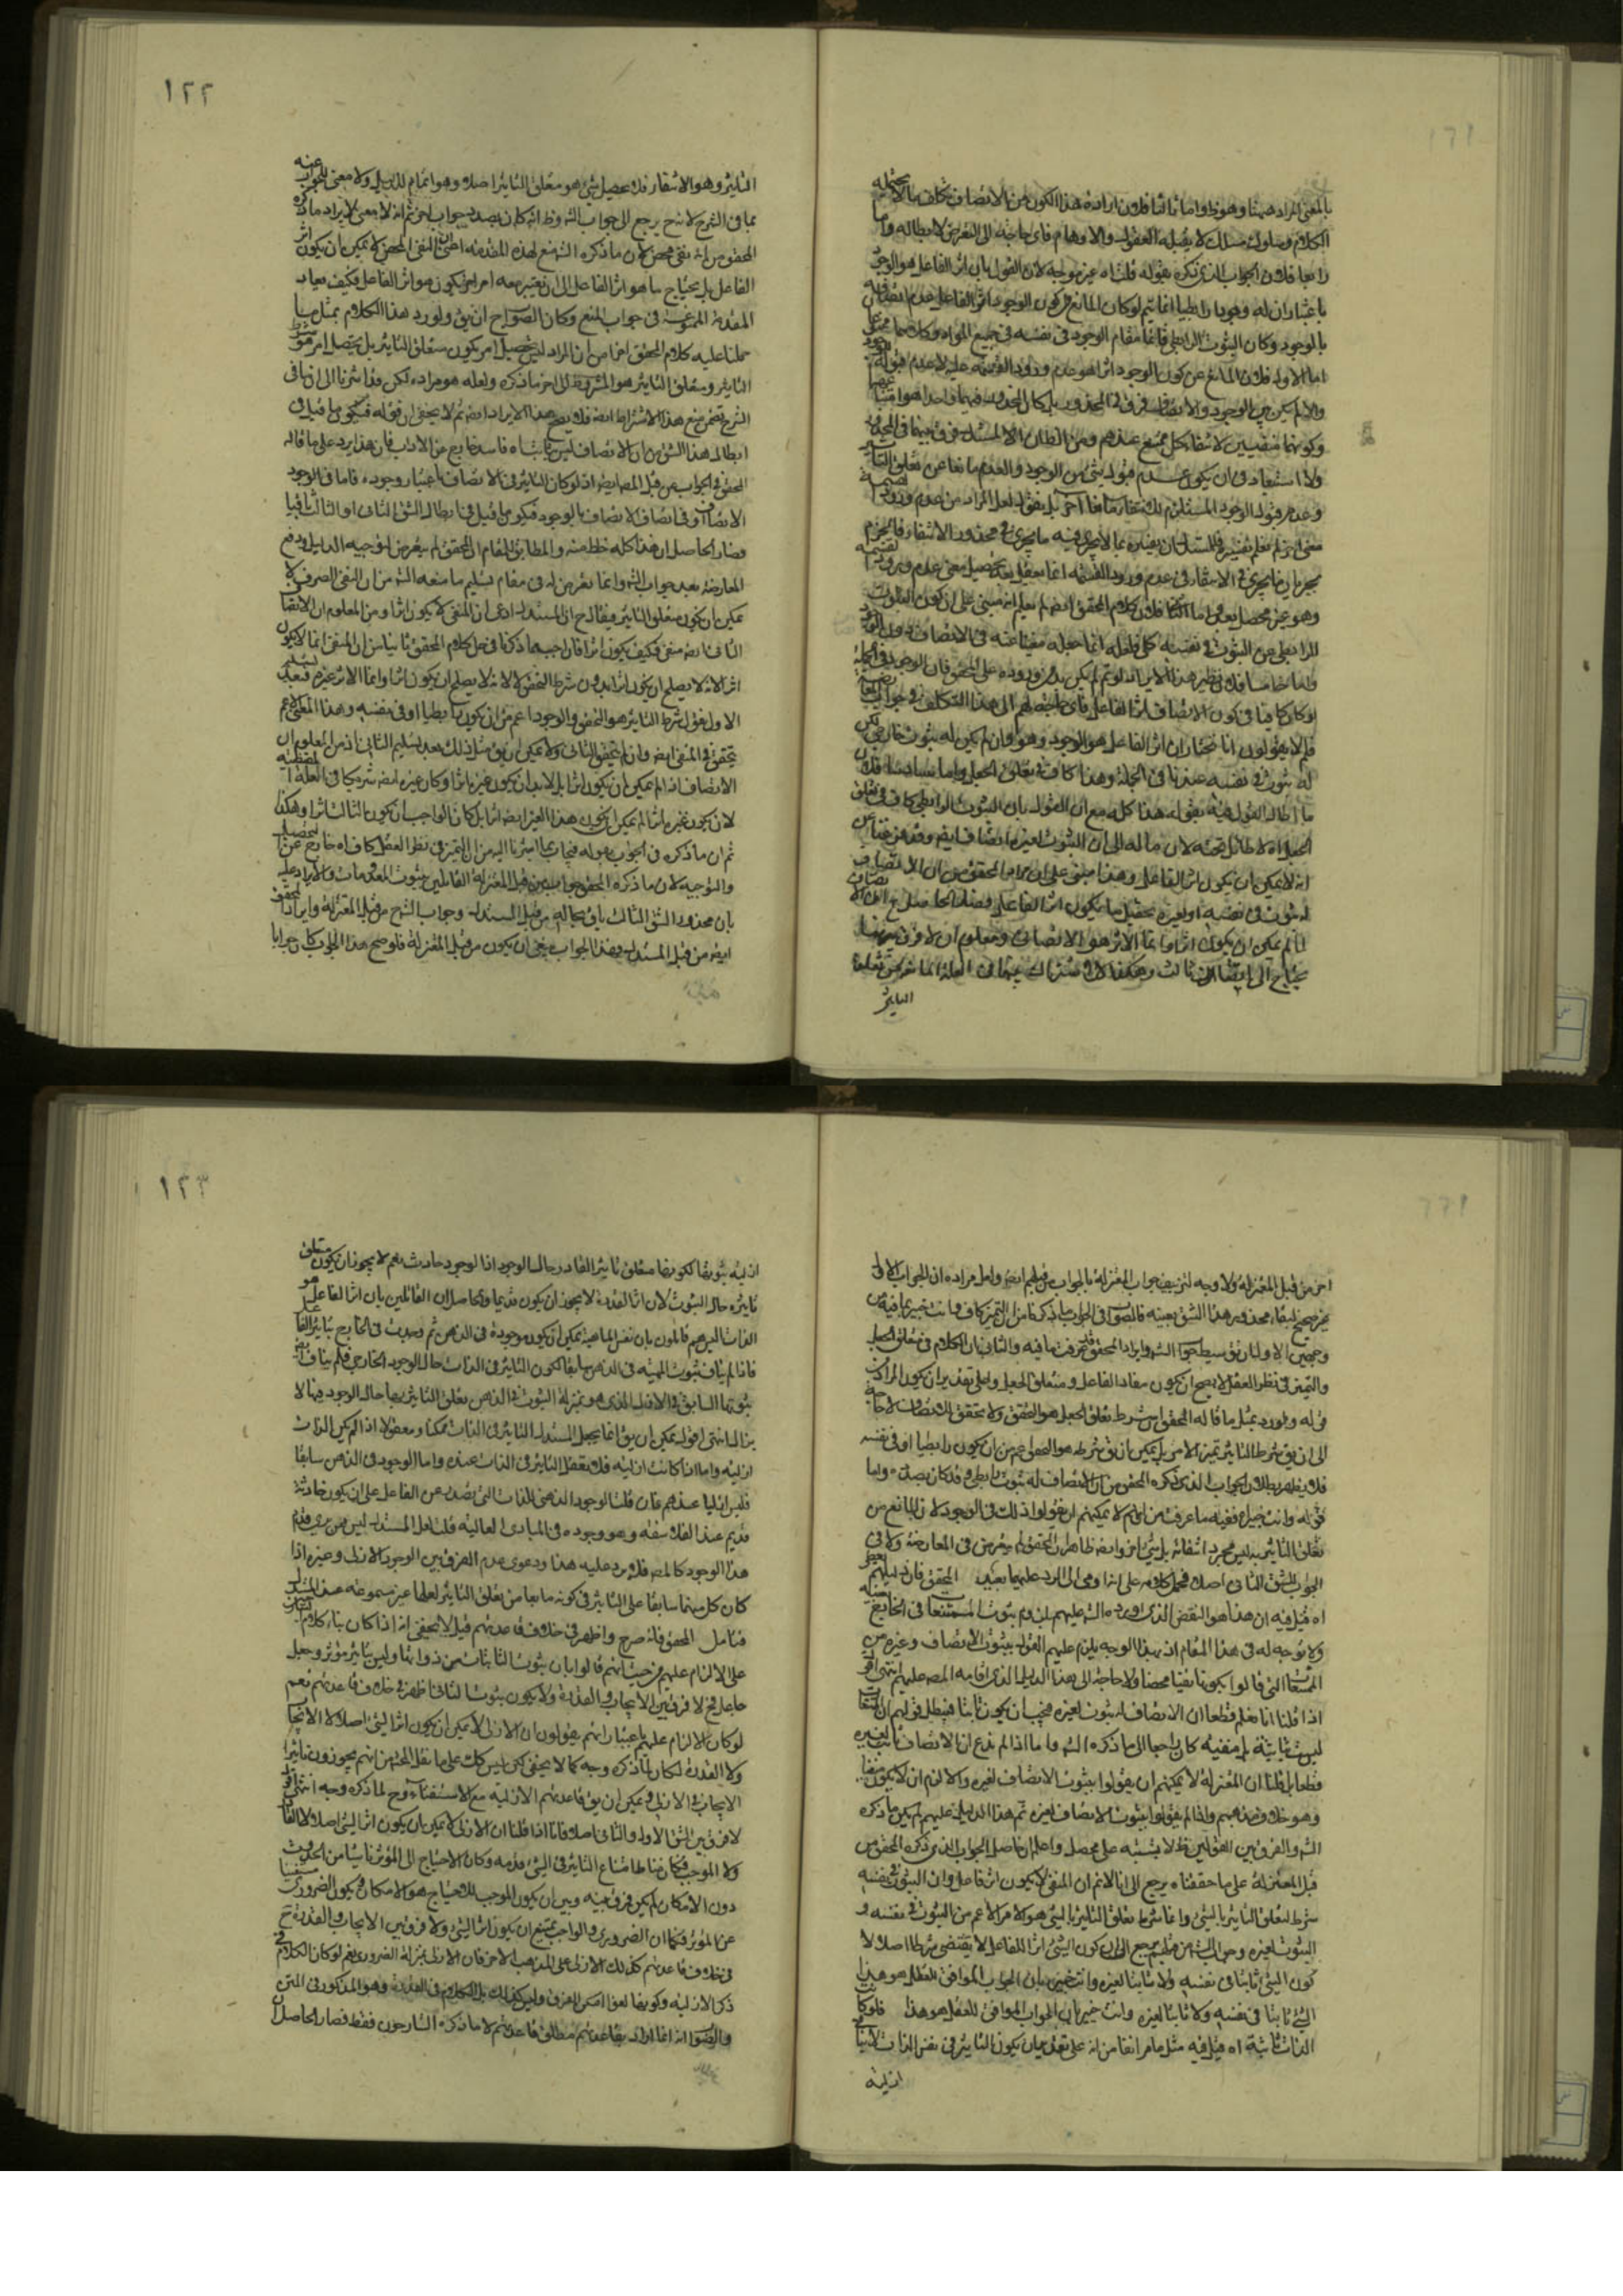 بالمعنى المراد ههنا وهو ظ واما ثالثا فلان ارادة هذا الكون من الاتصاف تكلف بالا يحتمله
الكلام وسلوك مسلك لا يقبله العقول والاوهام فاى حاجة الى التعرض لابطاله واما
رابعا فلان الجواب الذى ذكره بقوله قلت اه غير موجه لان القول بان اثر الفاعل هو الوجود
باعتبار ان له وجودا رابطيا انما يتم لو كان المانع من كون الوجود اثر الفاعل عدم
بالوجود وكان الثبوت الرابطى قائما مقام الوجود فى نفسه فى جميع المواد وكلاهما ممنوع
اما الاول فلان المانع عن كون الوجود اثرا هو عدم ورود القسمة عليه لا عدم قبوله
والا لم يكن بين الوجود والاتصاف فرق فى المحذور بل كان المحذور فيهما واحدا هو
وكونهما منفيين لانتفاء كل ممتنع عندهم ومن الظان الا المستدل فرق بينهما فى المحذور
ولا استبعاد فى ان يكون عدم قبول شئ من الوجود والعدم مانعا عن تعلق التأثير
وعدم قبول الوجود المستلزم لانتفاء مانعا آخر بل نقول لعل المراد من عدم ورود القسمة
معنى اخر لم نعلم تفسيره فللمستدل ان يفسره بما لا يجرى فيه ما يجرى فى محذور الانتفاء فالجزم
بجريان ما يجرى فى الانتفاء فى عدم ورود القسمة انما يعقل بعد تحصيل معنى عدم ورود القسمة
وهو غير محصل بعد واما فلان كلام المحقق ايضا لم يعلم انه مبنى على ان كون الثبوت
الرابطى عن الثبوت فى نفسه كل لعله انما جعله مغنيا عنه فى الاتصاف دون الوجود
واما خامسا فلان نظير هذا الايراد لو تم لم يكن بد من وروده على المحقق فان الوجود فى الجملة
لو كان كافيا فى كون الاتصاف اثر الفاعل فاى حاجة لهم الى هذا التكلف فى جواب
فلم لا يقولون انا نختار ان اثر الفاعل هو الوجود وهو وان لم يكن له ثبوت خارجى لكن
له ثبوت فى نفسه عندنا فى الجملة وهذا كاف فى تعلق الجعل واما سادسا فلان
ما ابطال القول فيه بقوله هذا كله مع ان القول بان الثبوت الرابطى كاف فى تعلق
الجعل اه لا طائل تحته لان ماله الى ان الثبوت لغيره اتصاف ايضا وقد مر
انه لا يمكن ان يكون اثر الفاعل وهذا مبنى على ان مراد المحقق من ان الاتصاف
له ثبوت فى نفسه او لغيره تحصيل ما يكون اثر الفاعل فصار الحاصل ح ان الاتصاف
لما لم يمكن ان يكون اثرا وانما الاثر هو الاتصاف ومعلوم ان لا فرق بينهما
يحتاج الى اتصاف ثالث وهكذا لاشتراك بينهما فى العلة انما عرض تعلق
التأثير
١٢٢
التأثير وهو الانتفاء فلا تحصيل شئ هو متعلق التأثير اصلا وهو اتمام للدليل ولا معنى للجواب عنه
بما فى الشرح لانه ح يرجع الى جواب الش وظ انه كان بصدد جواب اخر ثم انه لا معنى لايراد ما ذكره
المحقق من انه نفى محض لان ما ذكره الش منع لهذه المقدمة اعنى ان النفى المحض لا يمكن ان يكون اثر
الفاعل بل يحتاج ما هو اثر الفاعل الى ان يعتبر معه امر اخر يكون هو اثر الفاعل فكيف يعاد
المقدمة الممنوعة فى جواب المنع وكان الصواب ح ان يق ولو رد هذا الكلام بمثل ما
حملنا عليه كلام المحقق اخرا من ان المراد ليس تحصيل امر يكون متعلق التأثير بل تحصيل امر هو شرط
التأثير ومتعلق التأثير هو المشروط الى اخر ما ذكره ولعله هو مراده لكن قد اشرنا الى ان ما فى
الشرح يتضمن منع هذا الاشتراط ايضا فلا يصح هذا الايراد ايضا ثم لا يخفى ان قوله فيكون ما قيل فى
ابطال هذا الشق من ان الاتصاف ليس ثابتا اه فاسد خارج عن الاداب فان هذا يرد على ما قاله
المحقق فى الجواب من قبل المص ايضا اذ لو كان التأثير فى الاتصاف باعتبار وجوده فاما فى الوجود
الاتصاف او فى اتصاف الاتصاف بالوجود فيكون ما قيل فى ابطال الشق الثانى او الثالث باقيا
فصار الحاصل ان هذا كله خلط منه والمطابق للمقام ان المحقق لم يتعرض لتوجيه الدليل ودفع
المعارضة بعد جواب الش وانما تعرض له فى مقام تسليم ما منعه الش من ان النفى الصرف لا
يمكن ان يكون متعلق التأثير فيقال ح ان المستدل ادعى ان المنفى لا يكون اثرا ومن المعلوم ان الاتصاف
الثانى ايضا منفى فكيف يكون اثرا فاجيب بما ذكرنا فى حل كلام المحقق ثانيا من ان المنفى انما لا يكون
اثرا لانه لا يصلح ان يكون اثرا بدون شرط التحقق لا لانه لا يصلح ان يكون اثرا وانما الاثر غيره فبعد تسليم
الاول نقول شرط التأثير هو التحقق والوجود اعم من ان يكون رابطيا او فى نفسه وهذا المعنى الاعم
يتحقق فى المنفى ايضا وان لم يتحقق الثانى ولا يمكن ان يق مثل ذلك بعد تسليم الثانى اذ من المعلوم ان
الاتصاف اذا لم يمكن ان يكون اثرا بل لابد ان يكون غيره اثرا وكان غيره ايضا شريكا فى العلة المقتضية
لان يكون غيره اثرا لم يمكن ان يكون هذا الغير ايضا اثرا بل كان الواجب ان يكون الثالث اثرا وهكذا
ثم ان ما ذكره فى الجواب بقوله فيجاب بما اشرنا اليه من ان التميز فى نظر العقل كاف اه خارج عن التحصيل
والتوجيه لان ما ذكره المحقق جواب من قبل المعتزلة القائلين بثبوت المعدومات والايراد عليه
بان محذور الشق الثالث باق بحاله من قبل المستدل وجواب الشرح من قبل المعتزلة وايراد المحقق
ايضا من قبل المستدل وهذا الجواب ينبغى ان يكون من قبل المعتزلة فلو صح هذا الجواب كان جوابا
اخر من قبل المعتزلة ولا وجه لتزييف جواب المعتزلة بالجواب من قبلهم ايضا ولعل مراده ان الجواب الاول
غير صحيح لبقاء محذور هذا الشق بعينه فالصواب فى الجواب ما ذكرنا من ان التميز كاف وانت خبير بما فيه من
وجهين الاول ان توسيط جواب الش وايراد المحقق قد عرفت ما فيه والثانى ان الكلام فى متعلق الجعل
والتميز فى نظر العقل لا يصح ان يكون مفاد الفاعل ومتعلق الجعل وعلى تقدير ان يكون المراد من
قوله ولو رد بمثل ما قاله المحقق من شرط تعلق الجعل هو التحقق ولا تحقق للاتصاف لا حاجة
الى ان يق شرط التأثير تميز الامر بل يمكن ان يق شرطه هو التحقق اعم من ان يكون رابطيا او فى نفسه
فلا يظهر بطلان الجواب الذى ذكره المحقق من ان الاتصاف له ثبوت رابطى وقد كان بصدده واما
قوله وانت خبير اه ففيه ما عرفت من انهم لا يمكنهم ان يقولوا ذلك فى الوجود لان المانع من
تعلق التأثير به ليس مجرد انتفائه بل شئ اخر وايضا ظاهر ان المحقق لم يتعرض فى المعارضة ولا فى
الجواب للشق الثانى اصلا فحمل كلامه على انه اومى الى الرد عليهما بعيد المحقق فان دليلهم
اه قيل فيه ان هذا هو النقض الذى اورده الش عليهم بلزوم ثبوت الممتنعات فى الخارج
ولا توجه له فى هذا المقام اذ بهذا الوجه يلزم عليهم القول بثبوت الاتصاف وغيره من
الممتنعات التى قالوا بكونها نفيا محضا ولا حاجة الى هذا الدليل الذى اقامه المص عليهم انتهى اقول
اذا قلنا انا نعلم قطعا ان الاتصاف له ثبوت لغيره فيجب ان يكون ثابتا فيبطل قولهم ان
ليست ثابتة بل منفية كان راجعا الى ما ذكره الش واما اذا لم ندع ان الاتصاف ثابت لغيره
قطعا بل قلنا ان المعتزلة لا يمكنهم ان يقولوا بثبوت الاتصاف لغيره والا لزم ان لا يكون منفيا
وهو خلاف مذهبهم واذا لم يقولوا بثبوت الاتصاف لغيره تم هذا الدليل عليهم لم يكن ما ذكره
الش والفرق بين القولين ظ لا يشتبه على محصل واعلم ان حاصل الجواب الذى ذكره المحقق من
قبل المعتزلة على ما حققناه يرجع الى انا لانم ان المنفى لا يكون اثر فاعل وان الثبوت فى نفسه
شرط لتعلق التأثير بالشئ وانما شرط تعلق التأثير بالشئ هو الامر الاعم من الثبوت فى نفسه و
الثبوت لغيره وجواب الش من قبلهم يرجع الى ان كون الشئ اثرا للفاعل لا يقتضى شرطا اصلا لا
كون الشئ ثابتا فى نفسه ولا ثابتا لغيره وانت خبير بان الجواب الموافق للعقل هو هذا
الشئ ثابتا فى نفسه ولا ثابتا لغيره وانت خبير بان الجواب الموافق للعقل هو هذا فلو كانت
الذات ثابتة اه قيل فيه مثل ما مر انفا من انه على تقدير ان يكون التأثير فى نفس الذات لا ينافى
ازلية
١٢٣
ازلية ثبوتها لكونها متعلق تأثير القادر حال الوجود اذ الوجود حادث نعم لا يجوز ان يكون متعلق
تأثيره حال الثبوت لان اثر القدرة لا يجوز ان يكون قديما والحاصل ان القائلين بان اثر الفاعل هو
الذات اليس هم قائلون بان نفس الماهية يمكن ان يكون موجودة فى الذهن ثم وجدت فى الخارج بتأثير الفاعل
فاذا لم يناف ثبوت المهية فى الذهن سابقا لكون التأثير فى الذات حال الوجود الخارجى فلم ينافه
ثبوتها السابق فى الازل الذى هو بمنزلة الثبوت فى الذهن تعلق التأثير بها حال الوجود فيما لا
يزال انتهى اقول يمكن ان يق انما يجعل المستدل التأثير فى الذات ممكنا ومعقولا اذا لم يكن الذات
ازلية واما اذا كانت ازلية فلا يعقل التأثير فى الذات عنده واما الوجود فى الذهن سابقا
فليس ازليا عندهم فان قلت الوجود الذهنى للذات التى تصدر عن الفاعل على ان يكون حادثة
قديم عند الفلاسفة وهو وجوده فى المبادى العالية قلت لعل المستدل ليس ممن يرى قدم
هذا الوجود كالمص فلا يرد عليه هذا ودعوى عدم الفرق بين الوجود الازلى وغيره اذا
كان كل منهما سابقا على التأثير فى كونه مانعا من تعلق التأثير لعلها غير مسموعة عند المستدل
فتأمل المحقق فانه صرح واظهر فى خلاف قاعدتهم قيل لا يخفى انه اذا كان بناء كلام الشارح
على الالزام عليهم من حيث انهم قالوا بان ثبوت الثابتات من ذواتها وليس بتأثير مؤثر وجعل
جاعل فح لا فرق بين الايجاب والقدرة ولا يكون ثبوت الثانى اظهر فى خلاف قاعدتهم نعم
لو كان الالزام عليهم باعتبار انهم يقولون ان الازلى لا يمكن ان يكون اثرا لشئ اصلا لا الايجاب
ولا القدرة لكان لما ذكره وجه كما لا يخفى لكن ليس كك على ما نقل المحقق من انهم يجوزون تأثير
الايجاب فى الازلى ويمكن ان يق قاعدتهم الازلية مع الاستغناء وح لما ذكره وجه انتهى اقول
لا فرق بين الشق الاول والثانى اصلا فانا اذا قلنا ان الازلى لا يمكن ان يكون اثرا لشئ اصلا لا القادر
ولا الموجب فكان مناط امتناع التأثير فى الشئ قدمه وكان الاحتياج الى المؤثر ناشيا من الحدوث
دون الامكان لم يكن فرق بينه وبين ان يكون الموجب للاحتياج هو الامكان فيكون الضرورى مستغنيا
عن المؤثر فكما ان الضرورى والواجب يمتنع ان يكون اثرا لشئ ولا فرق بين الايجاب والقدرة ح
فى خلاف قاعدتهم كذلك الازلى على المذهب الاخر فان الازلى بمنزلة الضرورى نعم لو كان الكلام فى
ذكر الازلية وكونها لغوا امكن الفرق وليس كذلك بل الكلام فى القدرة وهو المذكور فى المتن
والصواب انه انما اراد بقاعدتهم مطلق قاعدتهم لا ما ذكره الشارحون فقط فصار الحاصل ان